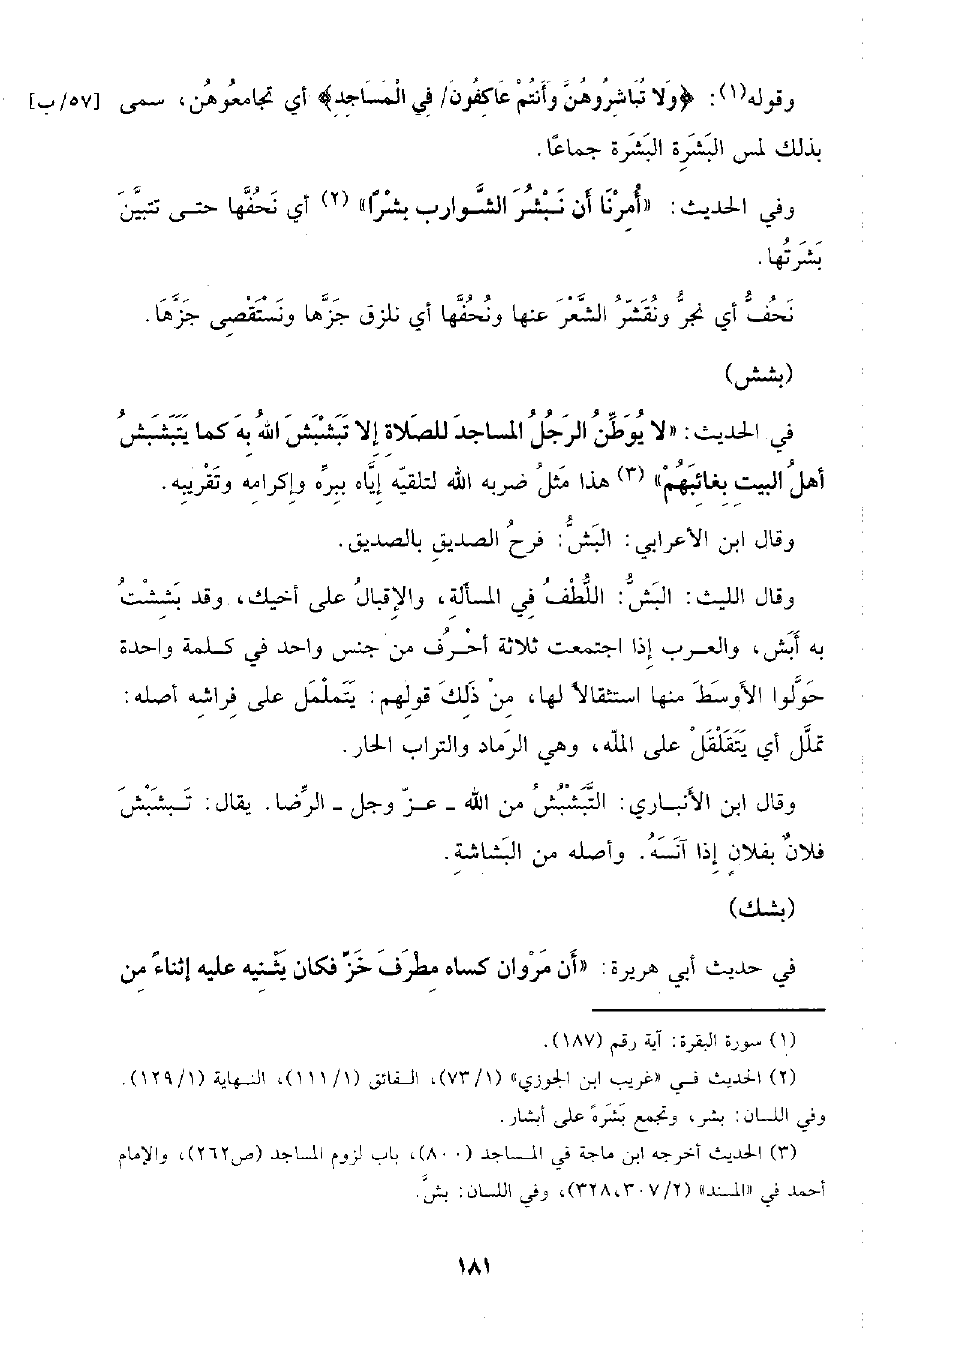 وقوله(١): ﴿وَلَا تُبَاشِرُوهُنَّ وَأَنتُمْ عَاكِفُونَ/ فِي الْمَسَاجِدِ﴾ أي تجامعُوهُن، سمى [٥٧/ب]
بذلك لمس البَشَرِة البَشَرة جماعًا.
وفي الحديث: «أُمِرْنَا أن نَبْشُرَ الشَّوارب بشْرًا» (٢) أي نَحُفَّها حتى تتبيَّنَ
بَشَرتُها.
نَحُفُّ أي نجرُّ ونُقَشّرُ الشَّعْرَ عنها ونُحُفَّها أي نلزق جَزَّها ونَسْتَقْصِى جَزَّهَا.
(بشش)
في الحديث: «لا يُوَطِّنُ الرجُلُ المساجدَ للصَلاةِ إلا تَبَشْبَشَ اللهُ بِهَ كما يَتَبَشبشُ
أهلُ البيتِ بِغائبِهَمُ» (٣) هذا مَثلُ ضربه الله لتلقيّه إيَّاه ببِرِّه وإكرامِه وتَقْريبِه.
وقال ابن الأعرابي: البَشُّ: فرحُ الصديقِ بالصديق.
وقال الليث: البَشُّ: اللُّطْفُ فِي المسألةِ، والإقبالُ على أخيك، وقد بَشِشْتُ
به أَبَش، والعرب إذا اجتمعت ثلاثة أحْرُف من جنس واحد في كلمة واحدة
حَوَّلوا الأوسَطَ منها استثقالاً لها، مِنْ ذَلِكَ قولهم: يَتَملْمَل على فِراشِه أصله:
تملَّل أي يَتَقَلْقَلْ على الملّه، وهي الرَماد والتراب الحار.
وقال ابن الأنباري: التَّبَشْبُشُ من الله ـ عزّ وجل ـ الرِّضا. يقال: تَبشبَشَ
فلانٌ بفلانٍ إذا آنَسَهُ. وأصله من البَشاشةِ.
(بشك)
في حديث أبي هريرة: «أن مَرْوان كساه مِطْرَفَ خَزّ فكان يَثْنِيه عليه إثناءً مِن
(١) سورة البقرة: آية رقم (١٨٧).
(٢) الحديث في «غريب ابن الجوزي» (٧٣/١)، الفائق (١١١/١)، النهاية (١٢٩/١).
وفي اللسان: بشر، وتجمع بَشَرَةً على أبشار.
(٣) الحديث أخرجه ابن ماجة في المساجد (٨٠٠)، باب لزوم المساجد (ص٢٦٢)، والإمام
أحمد في «المسند» (٣٢٨،٣٠٧/٢)، وفي اللسان: بشَّ.
١٨١